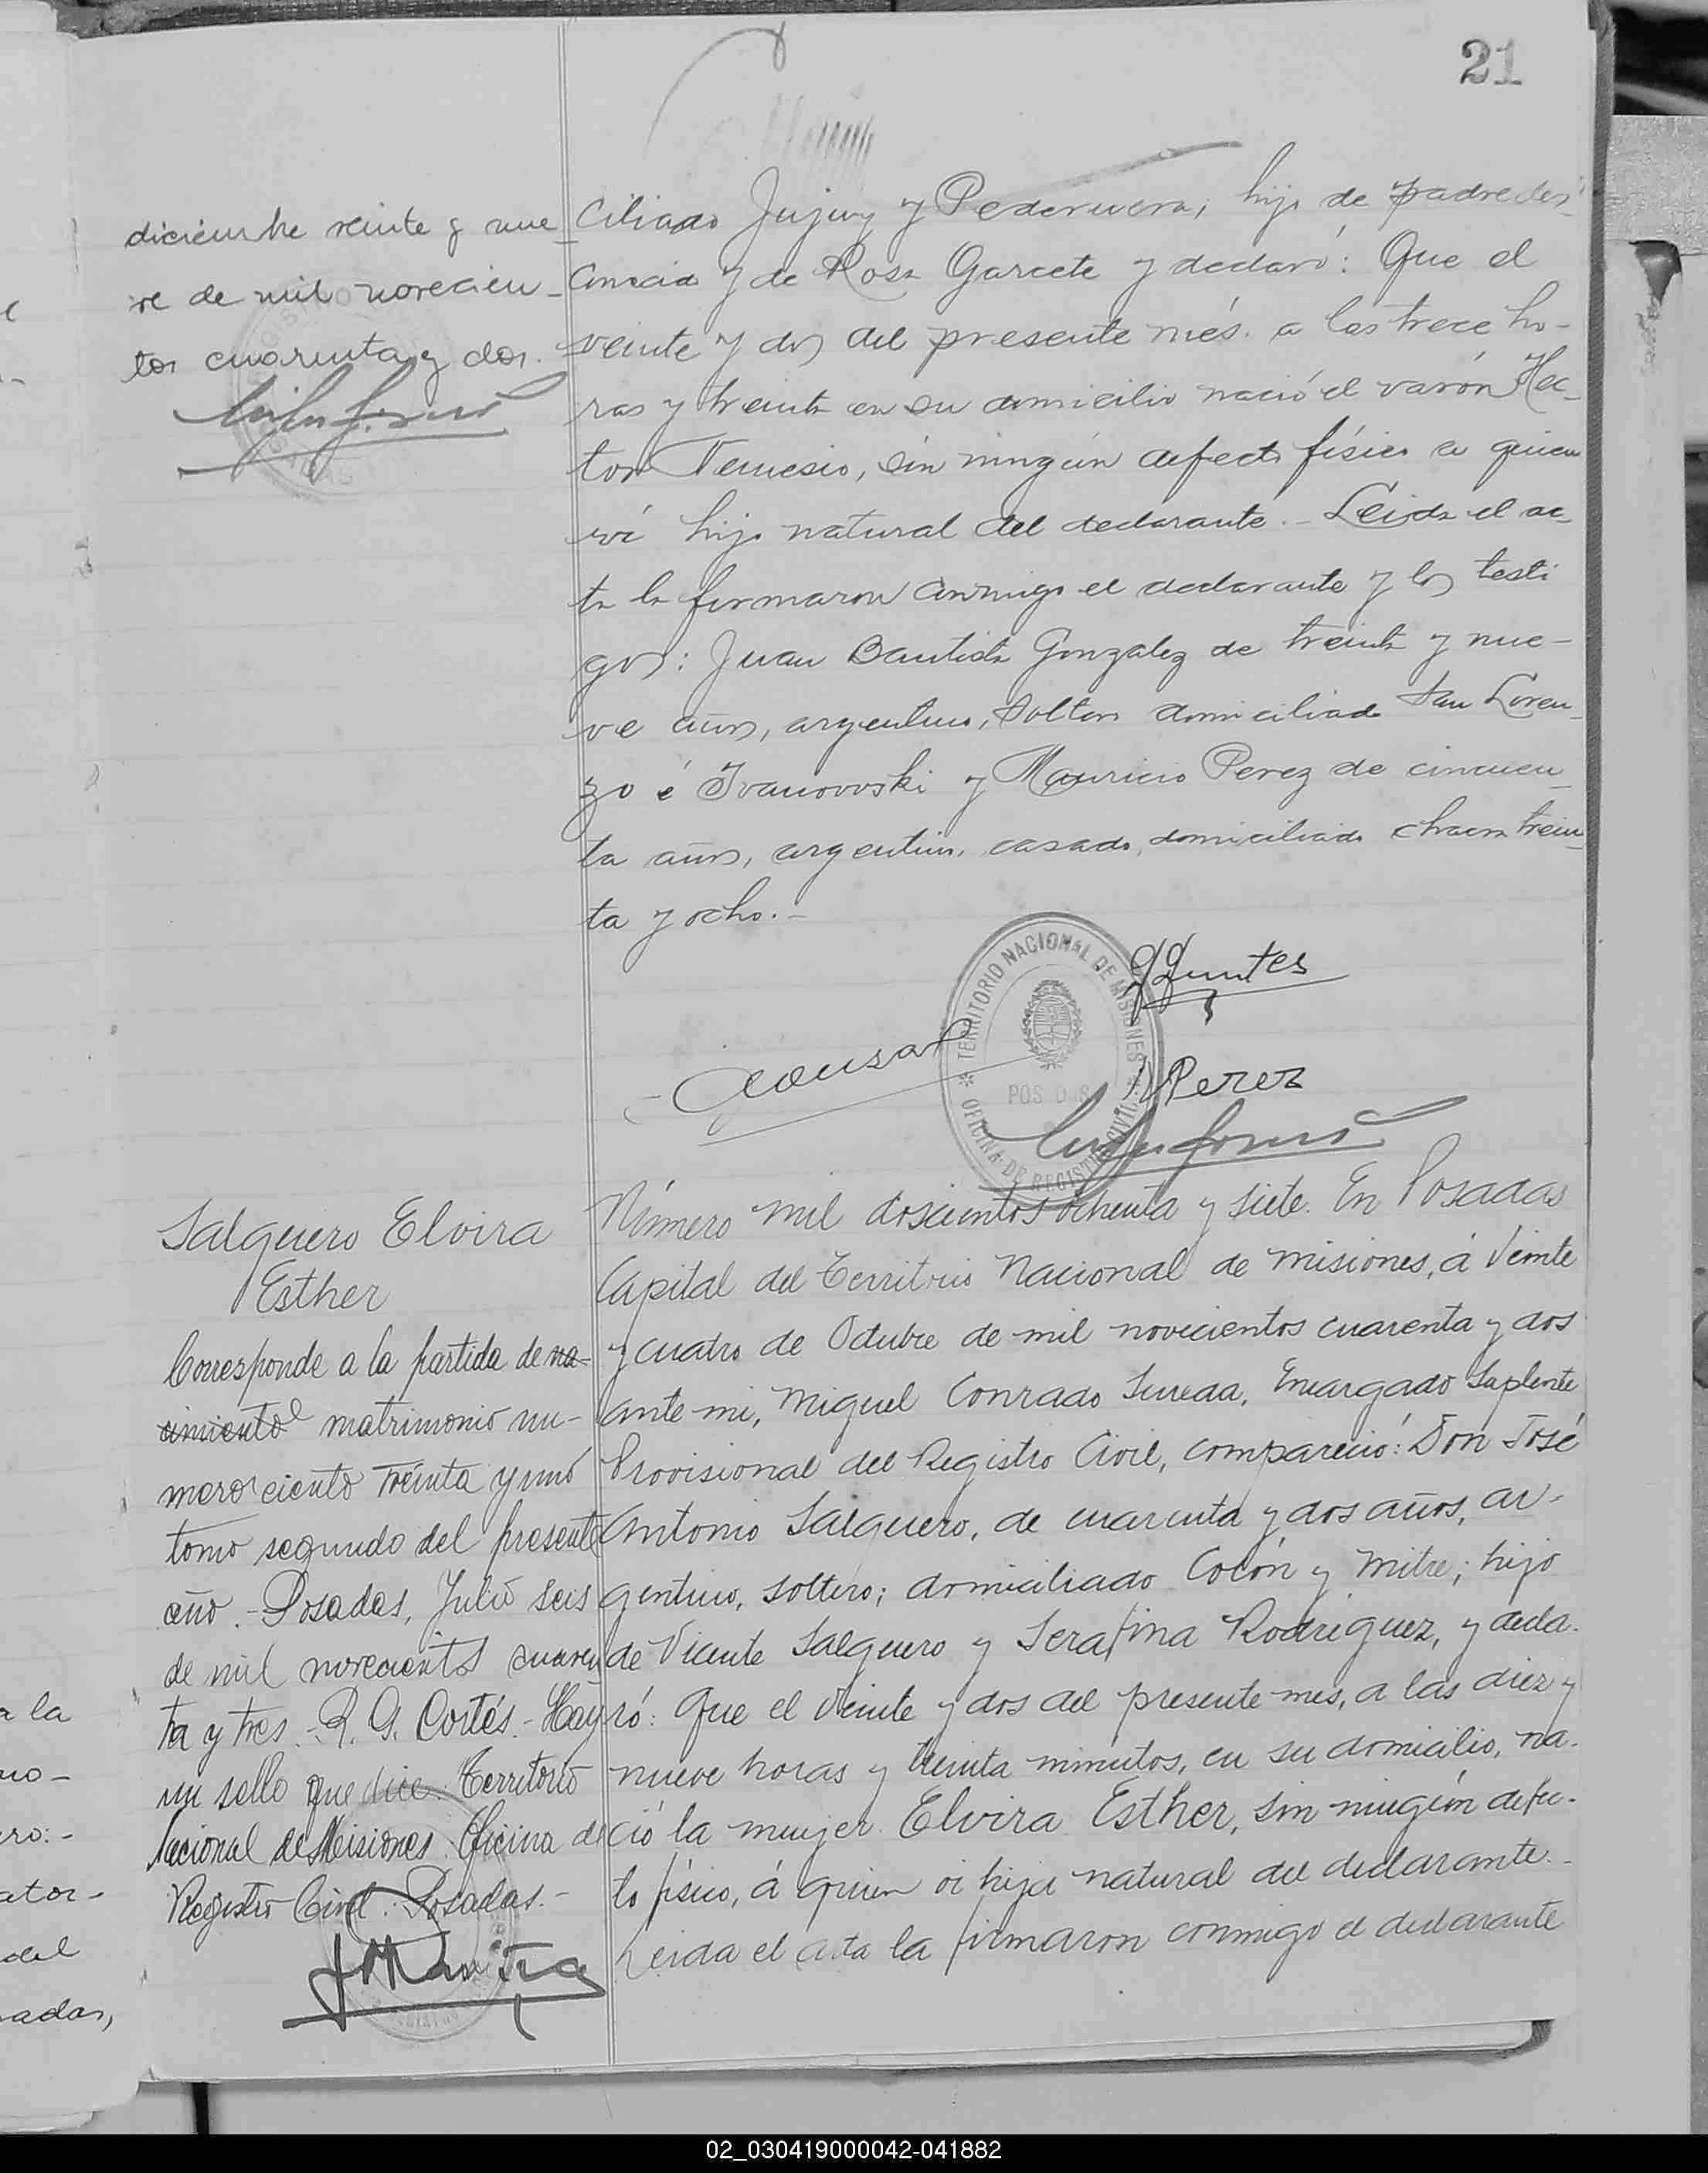 21
diciembre veinte y nue-
ve de mil novecien-
tos cuarenta y dos.
ciliado Jujuy y Pedernera; hijo de padre des-
conocido y de Rosa Garcete y declaró: Que el
veinte y dos del presente més. a las trece ho-
ras y treinta en su domicilio nació el varón Hec-
tor Nemesio, sin ningún defecto físico a quien
ví hijo natural del declarante.- Leida el ac-
ta la firmaron conmigo el declarante y los testi
gos: Juan Bautista Gonzalez de treinta y nue-
ve años, argentino, soltero domiciliado San Loren-
zo é Ivanovski y Mauricio Perez de cincuen-
ta años, argentino, casado, domiciliado chacra trein-
ta y ocho.-
TERRITORIO NACIONAL DE MISIONES
POSADAS
OFICINA DE REGISTRO CIVIL
MPerez
Salguero Elvira
Esther
Corresponde a la partida de na-
cimiento matrimonio nu-
mero ciento treinta y uno
tomo segundo del presente
año.- Posadas, Julio seis
de mil novecientos cuaren
ta y tres.- R. G. Cortés.- Hay
un sello que dice: Territorio
Nacional de Misiones. Oficina de
Registro Civil. Posadas.-
Número mil doscientos ochenta y siete. En Posadas
Capital del Territorio Nacional de Misiones, á Veinte
y cuatro de Octubre de mil novecientos cuarenta y dos
ante mi, Miguel Conrado Sureda, Encargado Suplente
Provisional del Registro Civil, compareció: Don José
Antonio Salguero, de cuarenta y dos años, ar-
gentino, soltero; domiciliado Colón y Mitre; hijo
de Vicente Salguero y Serafina Rodriguez, y decla-
ró: Que el veinte y dos del presente mes, a las diez y
nueve horas y treinta minutos, en su domicilio, na-
ció la mujer Elvira Esther, sin ningún defec-
to físico, á quien ví hija natural del declarante.-
Leida el acta la firmaron conmigo el declarante
a la
no-
ero:-
ator-
del
sadas,
02_030419000042-041882